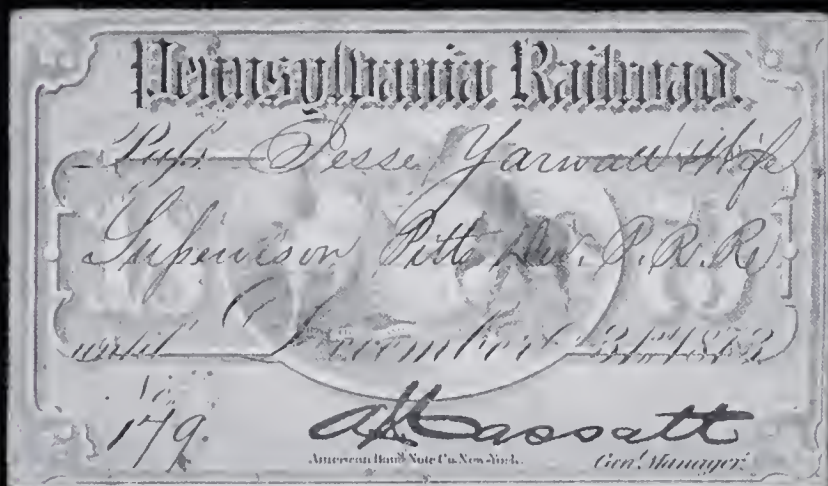 Pennsylvania Railroad.
Pass Jesse Yarnall & Wife
Supervisor Pitts Div. P. R. R.
until December 31st 1873
No
179.
A J Cassatt
American Bank Note Co. New-York.
Gen'l Manager.